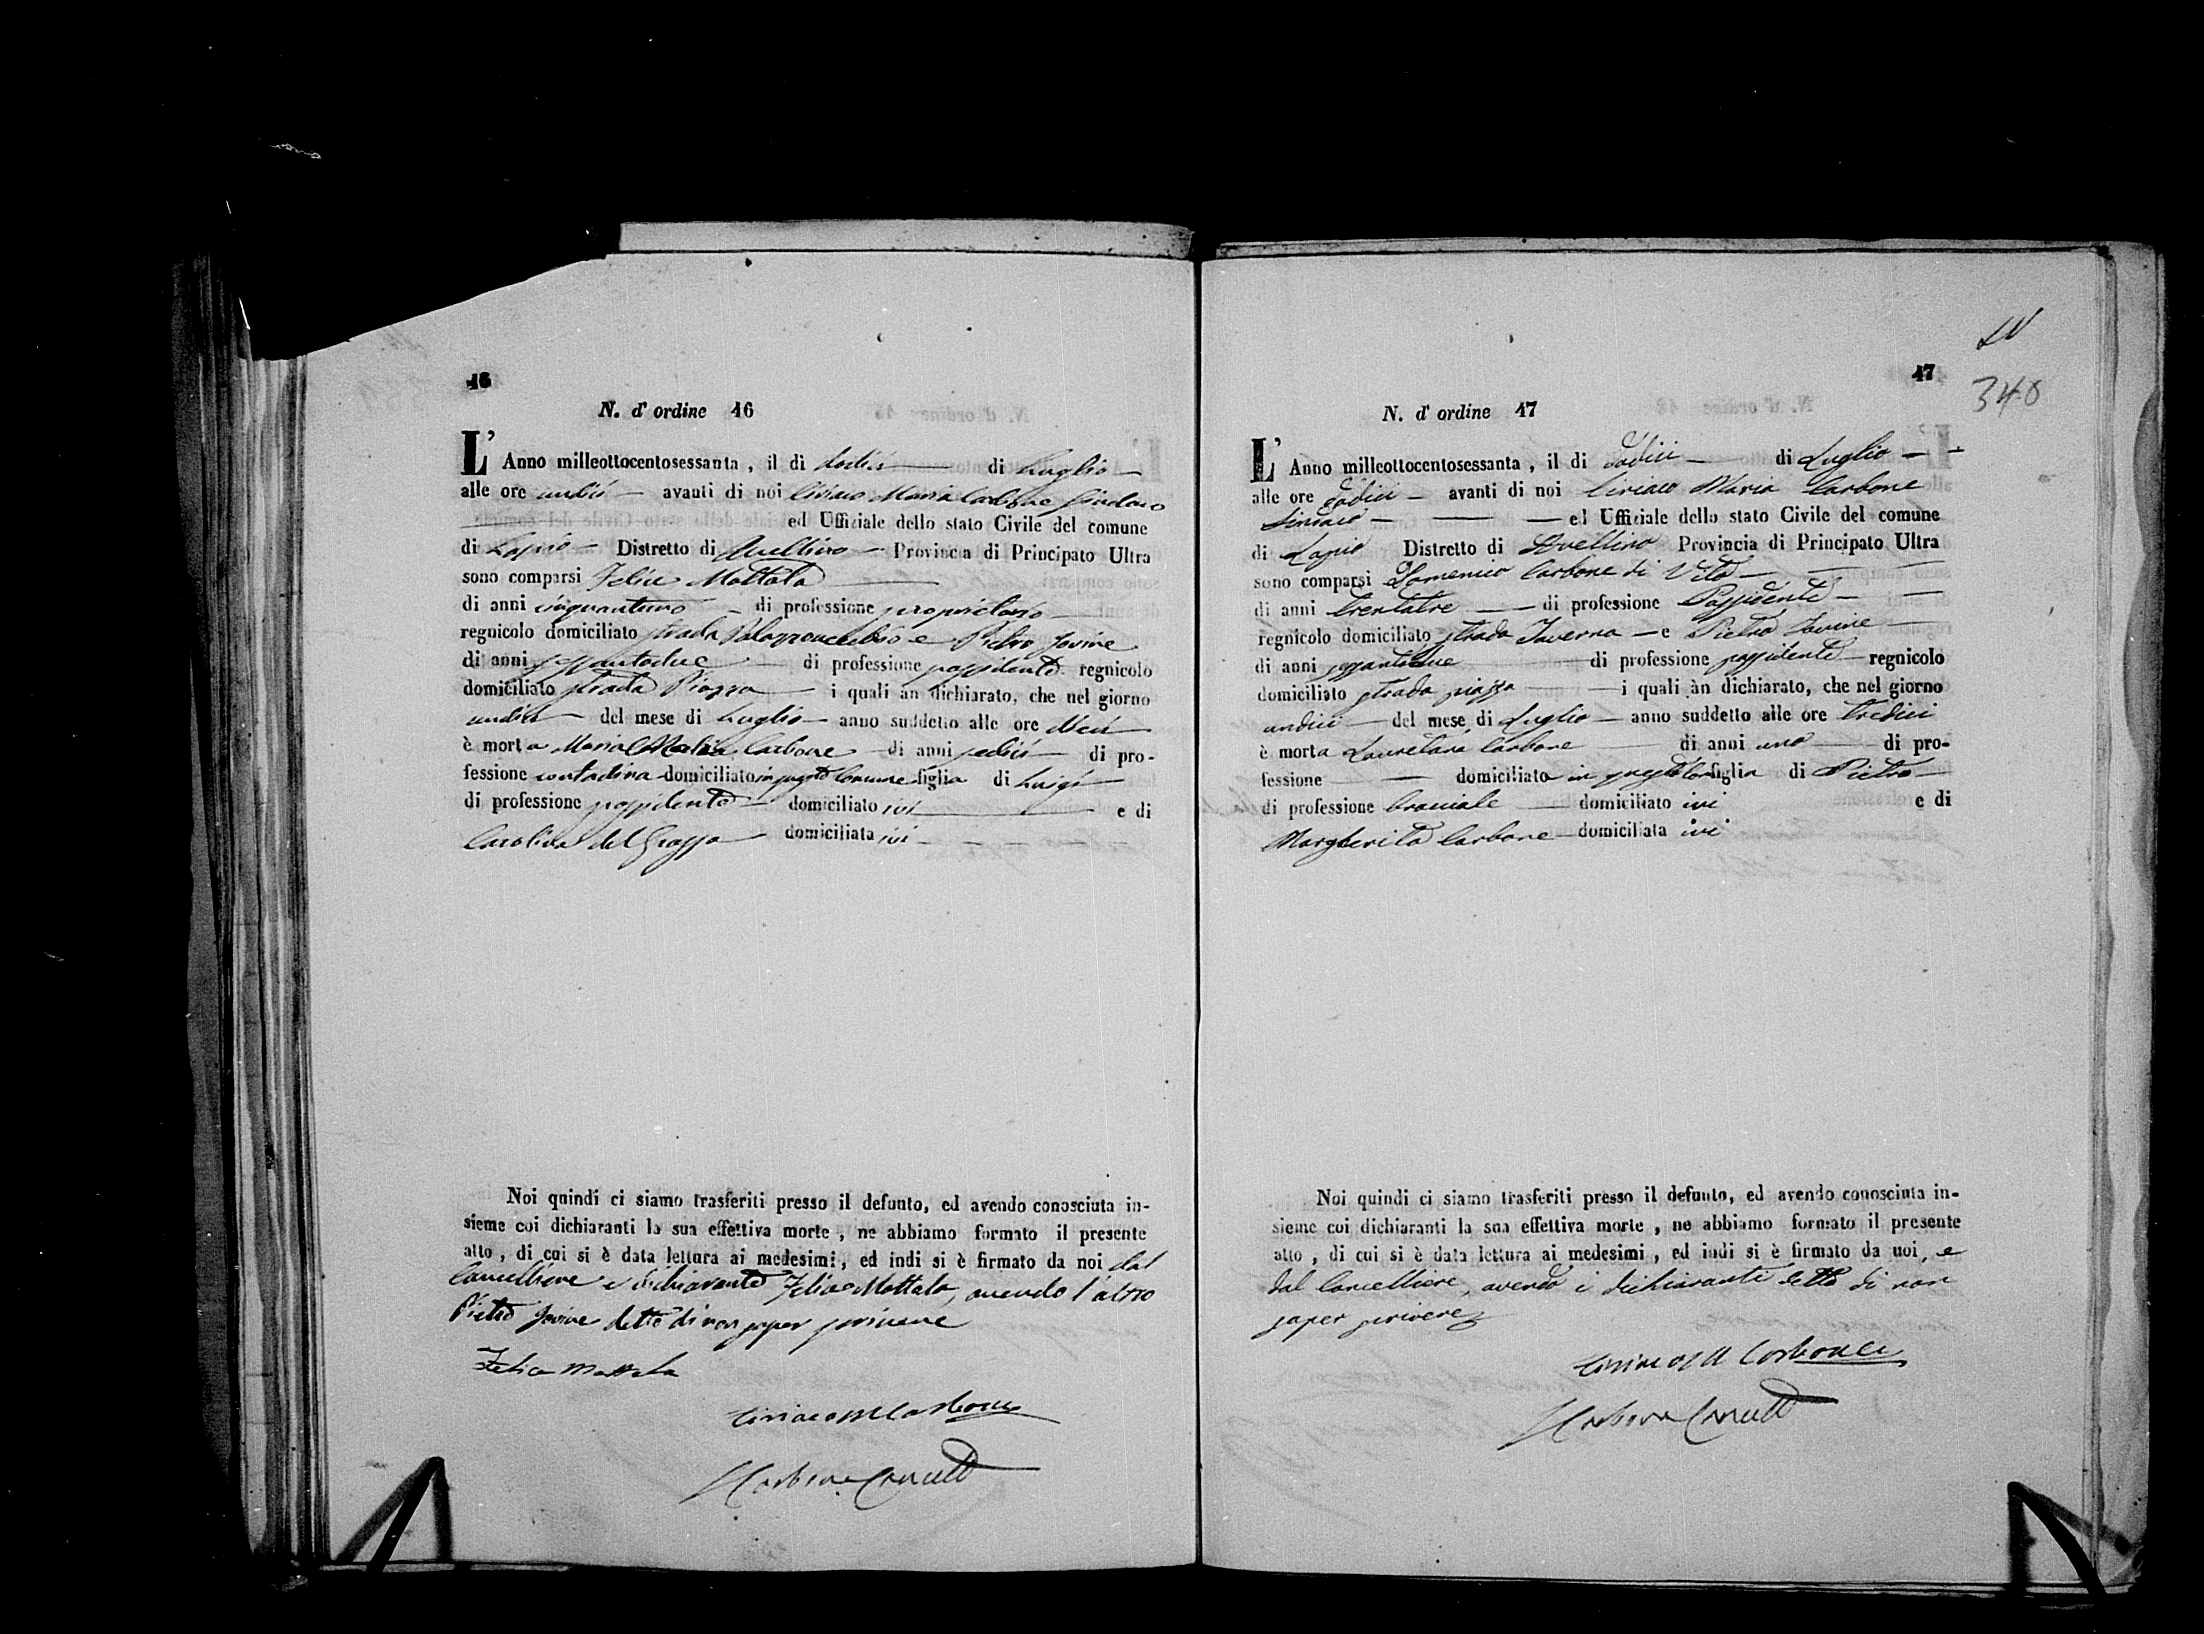 16
N. d' ordine 16
L' Anno milleottocentosessanta, il di dodici di Luglio
alle ore undici avanti di noi Ciriaco Maria Carbone Sindaco
ed Uffiziale dello stato Civile del comune
di Lapio Distretto di Avellino Provincia di Principato Ultra
sono comparsi Felice Mottola
di anni cinquantuno di professione proprietario
regnicolo domiciliato strada e Pietro Jovine
di anni sessantadue di professione possidente regnicolo
domiciliato strada Piazza i quali àn dichiarato, che nel giorno
undici del mese di Luglio anno suddetto alle ore
è morta Maria Carbone di anni sedici di pro-
fessione contadina domiciliato in questo Comune figlia di Luigi
di professione possidente domiciliato ivi e di
Carolina del Grosso domiciliata ivi
Noi quindi ci siamo trasferiti presso il defunto, ed avendo conosciuta in-
sieme coi dichiaranti la sua effettiva morte, ne abbiamo formato il presente
atto, di cui si è data lettura ai medesimi, ed indi si è firmato da noi dal
Cancelliere e dichiarante Felice Mottola, avendo l'altro
Pietro Jovine detto di non saper scrivere
Felice Mottola
Ciriaco M Carbone
Carbone Cancell
LV
47
348
N. d' ordine 47
L' Anno milleottocentosessanta, il di dodici di Luglio
alle ore dodici avanti di noi Ciriaco Maria Carbone
Sindaco ed Uffiziale dello stato Civile del comune
di Lapio Distretto di Avellino Provincia di Principato Ultra
sono comparsi Domenico Carbone di Vito
di anni trentatre di professione Possidente
regnicolo domiciliato strada Taverna e Pietro Jovine
di anni sessantadue di professione possidente regnicolo
domiciliato strada piazza i quali àn dichiarato, che nel giorno
undici del mese di Luglio anno suddetto alle ore tredici
è morta Lauretana Carbone di anni uno di pro-
fessione domiciliata in questo Com figlia di Pietro
di professione bracciale domiciliato ivi e di
Margherita Carbone domiciliata ivi
Noi quindi ci siamo trasferiti presso il defunto, ed avendo conosciuta in-
sieme coi dichiaranti la sua effettiva morte, ne abbiamo formato il presente
atto, di cui si è data lettura ai medesimi, ed indi si è firmato da noi, e
dal Cancelliere, avendo i dichiaranti detto di non
saper scrivere
Ciriaco M Carbone
Carbone Cancell